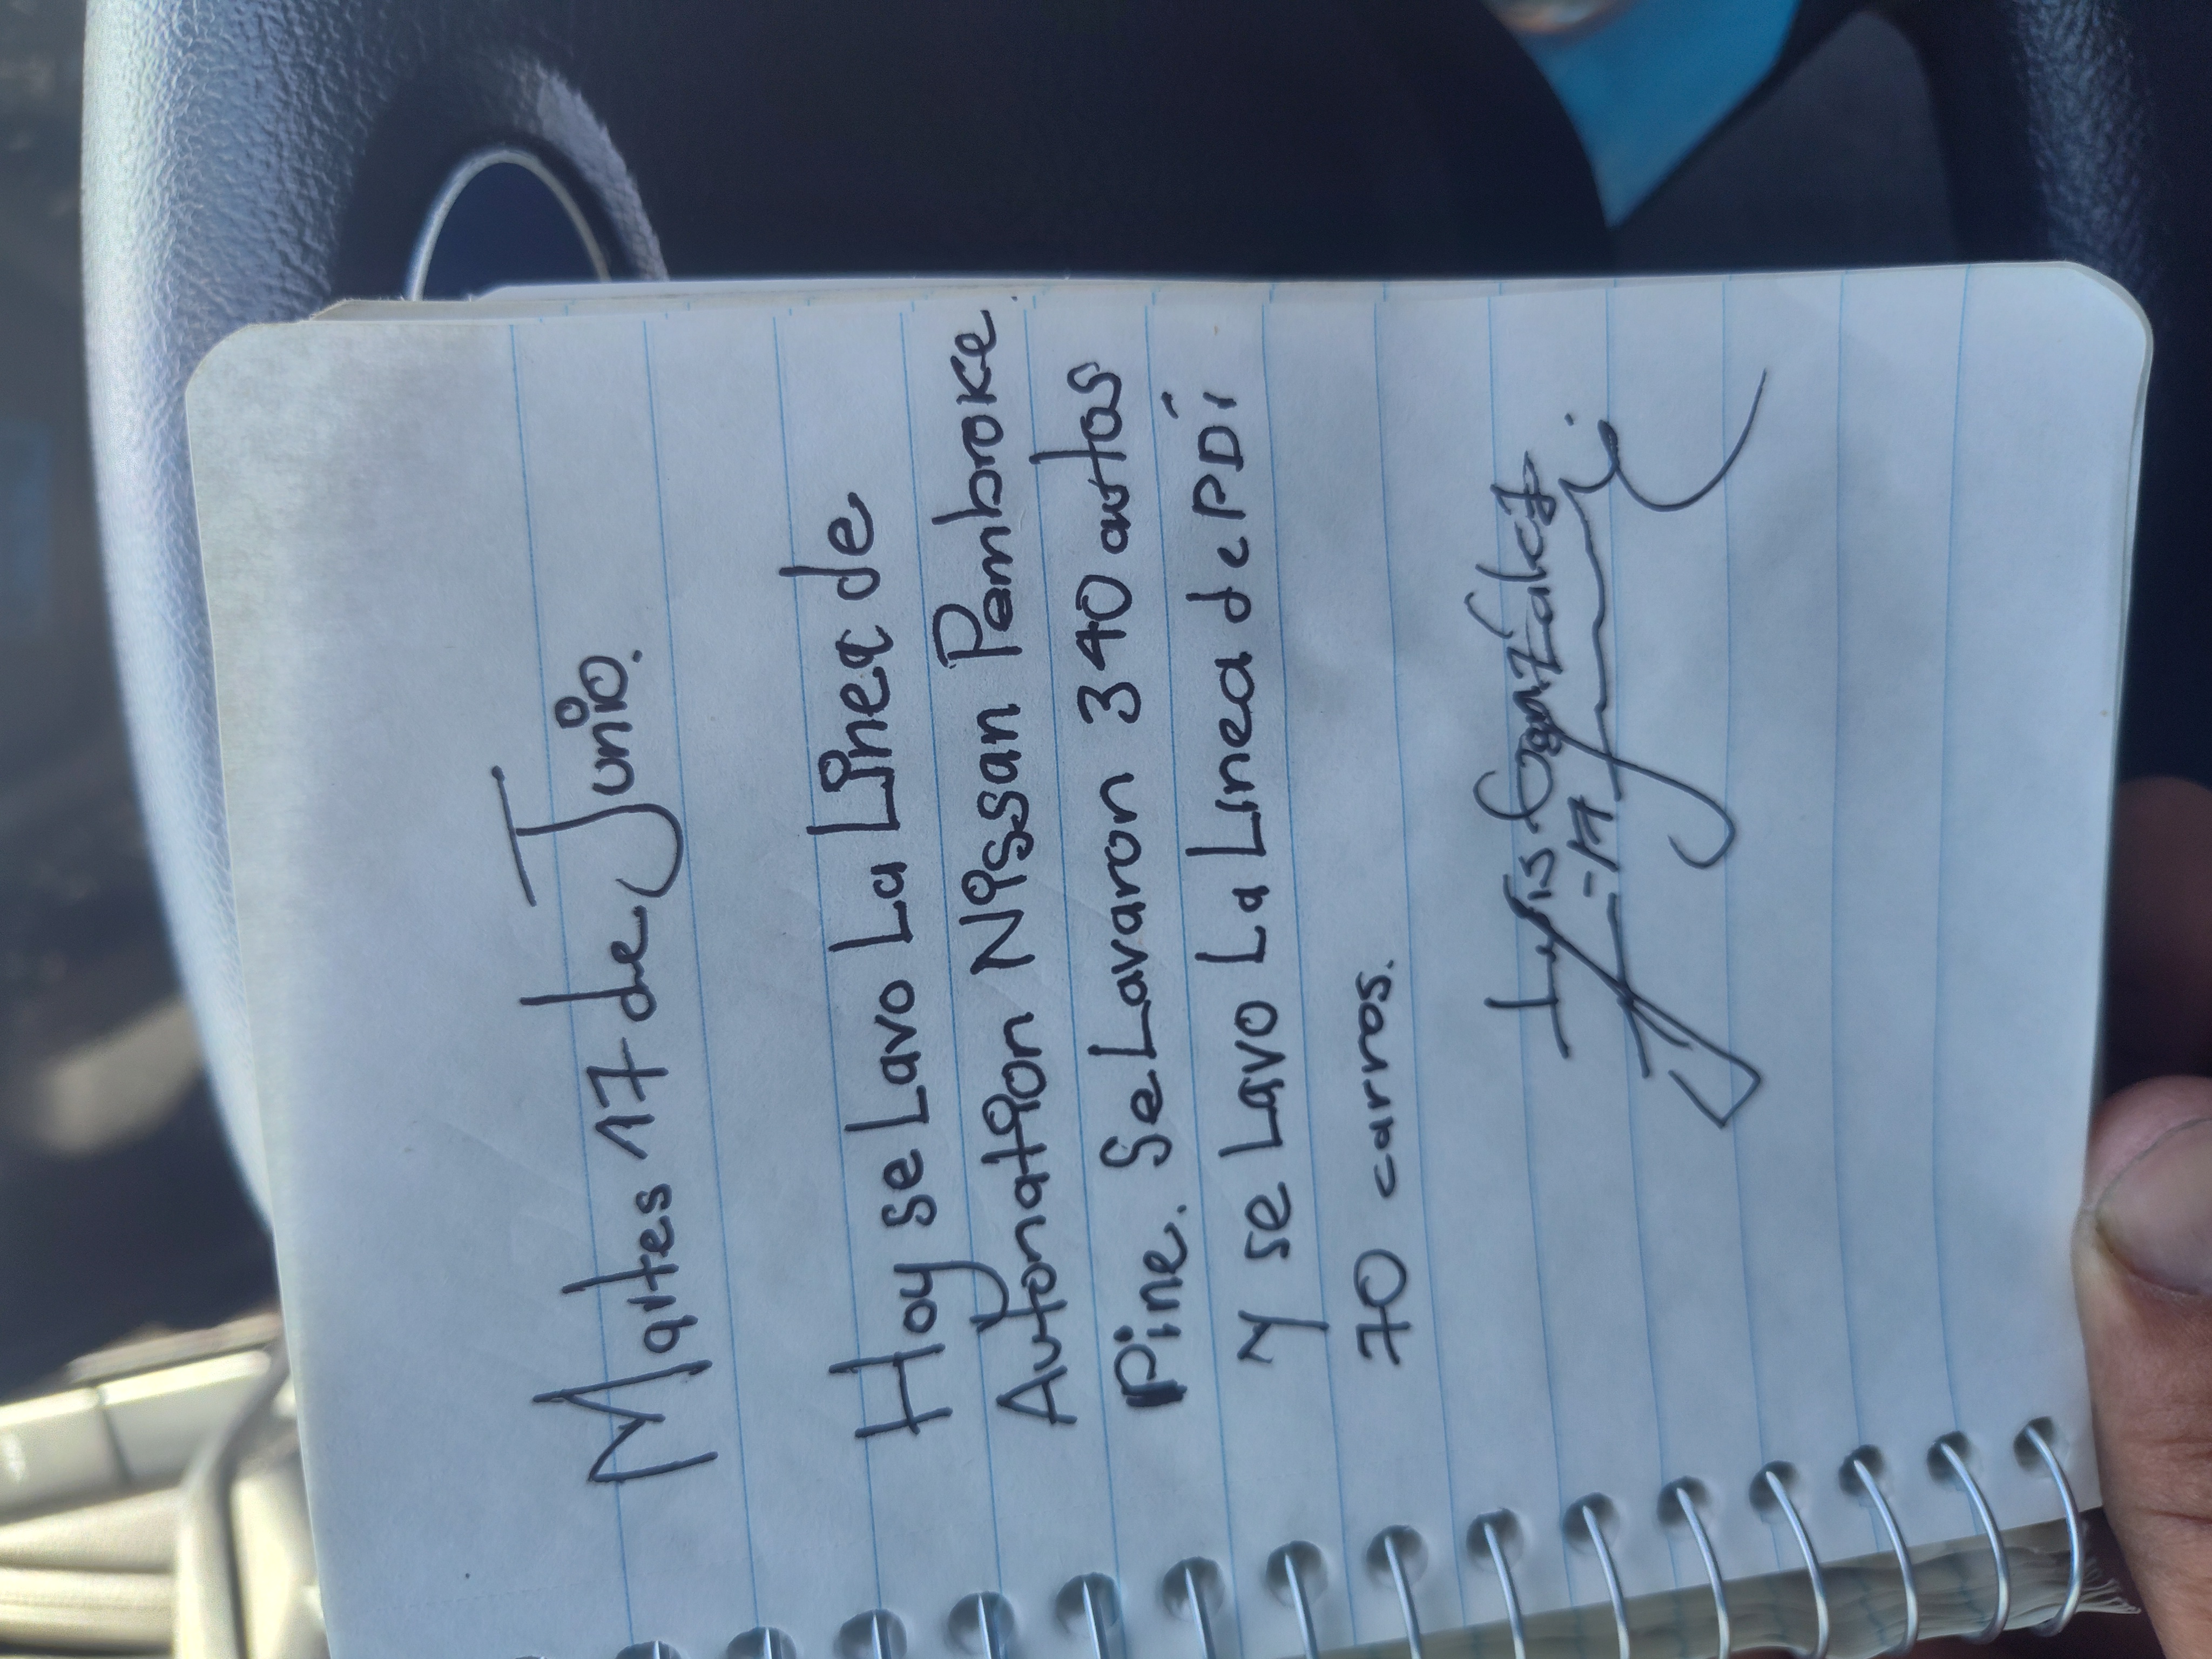 Martes 17 de Junio.
Hoy se Lavo La Linea de
Autonation Nissan Pembroke
Pine. Se Lavaron 340 autos
y se Lavo La Linea de PDi
70 carros.
Luis Gonzalez